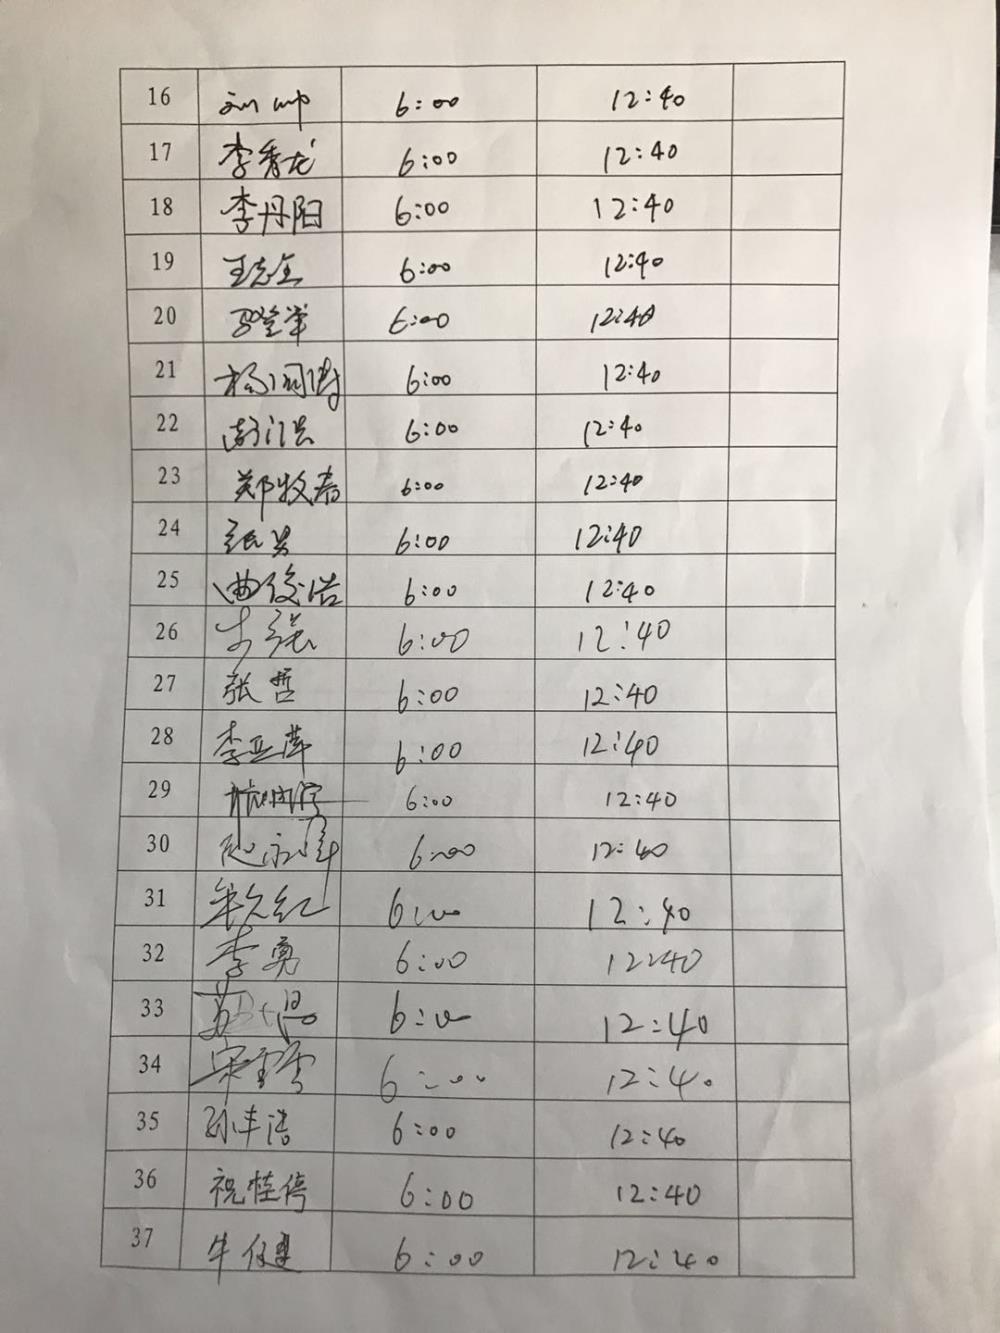 16 6:00 12:40
17 李秀龙 6:00 12:40
18 李丹阳 6:00 12:40
19 王志全 6:00 12:40
20 6:00 12:40
21 杨 6:00 12:40
22 6:00 12:40
23 郑牧春 6:00 12:40
24 张昊 6:00 12:40
25 曲俊浩 6:00 12:40
26 6:00 12:40
27 张哲 6:00 12:40
28 李亚萍 6:00 12:40
29 6:00 12:40
30 6:00 12:40
31 6:00 12:40
32 李勇 6:00 12:40
33 6:00 12:40
34 宋 6:00 12:40
35 孙丰浩 6:00 12:40
36 祝桂停 6:00 12:40
37 牛 6:00 12:40